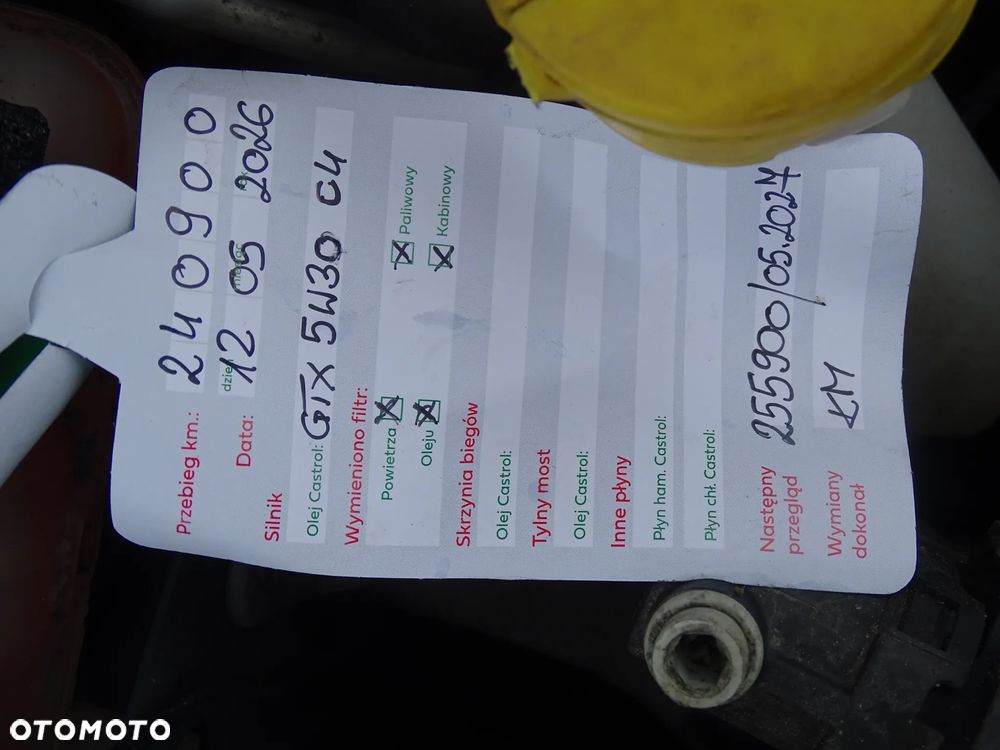 Przebieg km.: 240900
Data: 12 05 2026
Silnik
Olej Castrol: GTX 5W30 C4
Wymieniono filtr:
Powietrza ☒ ☒ Paliwowy
Oleju ☒ ☒ Kabinowy
Skrzynia biegów
Olej Castrol:
Tylny most
Olej Castrol:
Inne płyny
Płyn ham. Castrol:
Płyn chł. Castrol:
Następny przegląd 255900/05.2027
Wymiany dokonał KM
OTOMOTO